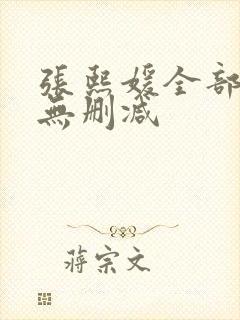 張熙媛全部
無删减
蒋宗文